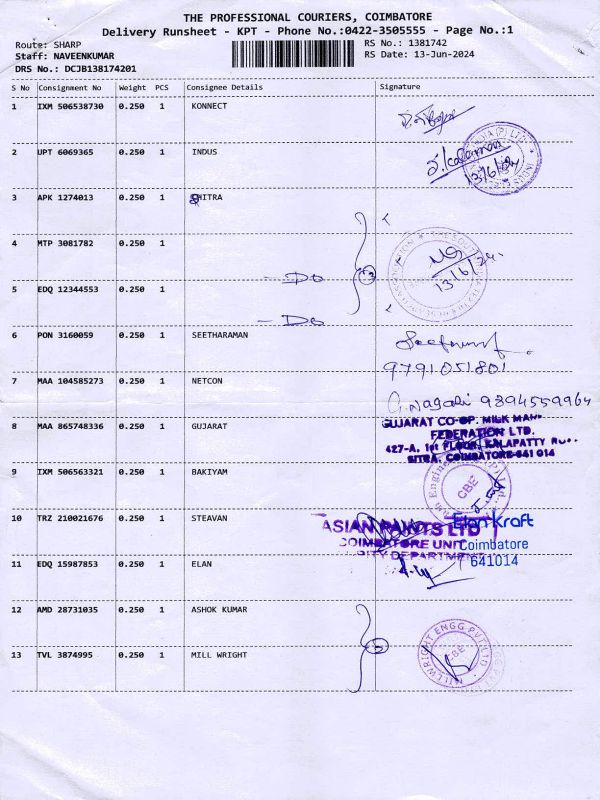 THE PROFESSIONAL COURIERS, COIMBATORE
Delivery Runsheet - KPT - Phone No.:0422-3505555 - Page No.:1
Route: SHARP
RS No.: 1381742
Staff: NAVEENKUMAR
RS Date: 13-Jun-2024
DRS No.: DCJB138174201
S No Consignment No Weight PCS Consignee Details Signature
1 IXM 506538730 0.250 1 KONNECT
2 UPT 6069365 0.250 1 INDUS
13/6/24
3 APK 1274013 0.250 1 SHITRA
4 MTP 3081782 0.250 1
13/6/24
- DO
5 EDQ 12344553 0.250 1
- DO
6 PON 3160059 0.250 1 SEETHARAMAN
9791051801
7 MAA 104585273 0.250 1 NETCON
G. Nagali 9394559964
8 MAA 865748336 0.250 1 GUJARAT
GUJARAT CO-OP. MILK
FEDERATION LTD.
427-A, 1st FLOOR, KALAPATTY
SITRA, COIMBATORE-641 014
9 IXM 506563321 0.250 1 BAKIYAM
CBE
10 TRZ 210021676 0.250 1 STEAVAN
ASIAN PAINTS LTD
COIMBATORE UNIT
SITE DEPARTMENT
Elan Kraft
Coimbatore
641014
11 EDQ 15987853 0.250 1 ELAN
12 AMD 28731035 0.250 1 ASHOK KUMAR
13 TVL 3874995 0.250 1 MILL WRIGHT
MILLWRIGHT ENGG PVT LTD
CBE